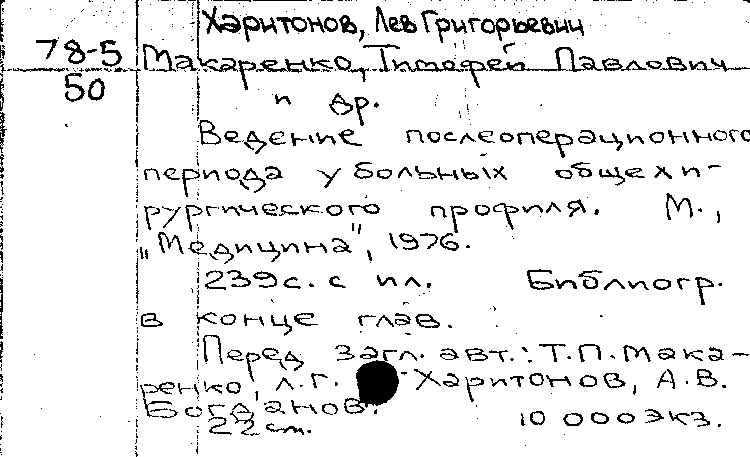 Харитонов, Лев Григорьевич
78-5 Макаренко, Тимофей Павлович
50
и др.
Ведение послеоперационного
периода у больных общехи-
рургического профиля. М.,
„Медицина", 1976.
239с. с ил. Библиогр.
в конце глав.
Перед загл. авт.: Т.П. Мака-
ренко, Л.Г. Харитонов, А.В.
Богданов.
22 см. 10 000 экз.